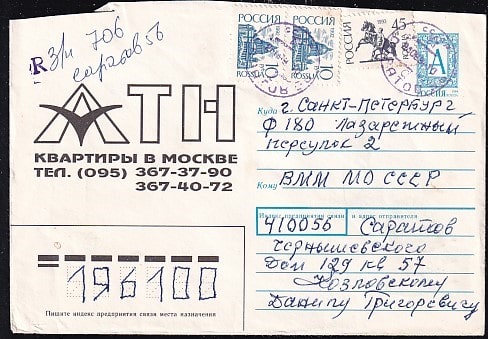 R З/П 706
Саратов 56
АТН
КВАРТИРЫ В МОСКВЕ
ТЕЛ. (095) 367-37-90
367-40-72
РОССИЯ
10
ROSSIJA
1992
РОССИЯ
10
ROSSIJA
1992
РОССИЯ
1992
45
А
РОССИЯ
Куда г. Санкт-Петербург
Ф 180 Лазаретный
переулок 2
Кому ВММ МО СССР
Индекс предприятия связи и адрес отправителя
410056 Саратов
Чернышевского
Дом 129 кв 57
Козловскому
Данилу Григоревичу
196100
Пишите индекс предприятия связи места назначения